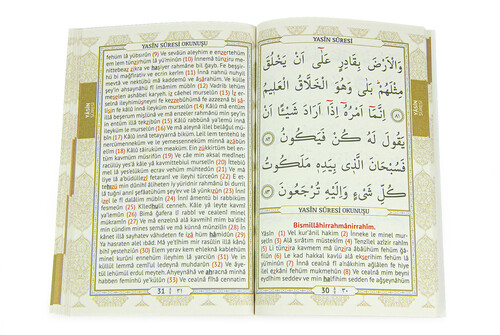 YASÎN SÛRESİ
وَالْاَرْضَ بِقَادِرٍ عَلٰٓى اَنْ يَخْلُقَ
مِثْلَهُمْ بَلٰى وَهُوَ الْخَلَّاقُ الْعَلِيمُ
﴿٨١﴾ اِنَّمَٓا اَمْرُهُٓ اِذَٓا اَرَادَ شَيْـًٔا اَنْ
يَقُولَ لَهُ كُنْ فَيَكُونُ ﴿٨٢﴾
فَسُبْحَانَ الَّذِي بِيَدِهِ مَلَكُوتُ
كُلِّ شَيْءٍ وَاِلَيْهِ تُرْجَعُونَ ﴿٨٣﴾
YASÎN SÛRESİ OKUNUŞU
Bismillâhirrahmânirrahîm.
Yâsîn (1) Vel kur'ânil hakîm (2) İnneke le minel mur-
selîn (3) Alâ sırâtim müstekîm (4) Tenzîlel azîzir rahîm
(5) Li tünzira kavmem mâ ünzira âbâühüm fehüm gâ-
filûn (6) Le kad hakkal kavlü alâ ekserihim fehüm lâ
yü'minûn (7) İnnâ cealnâ fî a'nâkıhim ağlâlen fe hiye
ilel ezkâni fehüm mukmehûn (8) Ve cealnâ mim beyni
eydîhim seddev ve min halfihim sedden fe ağşeynâhüm
30 ٣٠
YASÎN SÛRESİ OKUNUŞU
fehüm lâ yübsırûn (9) Ve sevâün aleyhim e enzertehüm
em lem tünzirhüm lâ yü'minûn (10) İnnemâ tünziru me-
nittebeaz zikra ve haşiyer rahmâne bil ğayb. Fe beşşir-
hü bi mağfirativ ve ecrin kerîm (11) İnnâ nahnü nuhyil
mevtâ ve nektübü mâ kaddemû ve âsârahüm. Ve külle
şey'in ahsaynâhü fî imâmim mübîn (12) Vadrib lehüm
meselen ashâbel karyeh. İz câehel murselûn (13) İz er-
selnâ ileyhimüsneyni fe kezzebûhümâ fe azzeznâ bi sâ-
lisin fe kâlû innâ ileyküm murselûn (14) Kâlû mâ entüm
illâ beşerum mislünâ ve mâ enzeler rahmânü min şey'in
in entüm illâ tekzibûn (15) Kâlû rabbünâ ya'lemü innâ
ileyküm le murselûn (16) Ve mâ aleynâ illel belâğul mü-
bîn (17) Kâlû innâ tetayyernâ biküm. Leil lem tentehû le
nercümenneküm ve le yemessenneküm minnâ azâbün
elîm (18) Kâlû tâiruküm meaküm. Ein zükkirtüm bel en-
tüm kavmüm müsrifûn (19) Ve câe min aksal medîneti
racülüy yes'â kâle yâ kavmittebiul murselîn (20) İttebiû
mel lâ yes'elüküm ecrav vehüm mühtedûn (21) Ve mâ
liye lâ a'büdüllezî fetaranî ve ileyhi türceûn (22) E et-
tehızü min dûnihî âliheten iy yüridnir rahmânü bi durril
lâ tuğni annî şefâatühüm şey'ev ve lâ yünkızûn (23) İnnî
izel le fî dalâlim mübîn (24) İnnî âmentü bi rabbiküm
fesmeûn (25) Kîledhulil cenneh. Kâle yâ leyte kavmî
ya'lemûn (26) Bimâ ğafera lî rabbî ve cealenî minel
mükramîn (27) Ve mâ enzelnâ alâ kavmihî mim ba'dihî
min cündim mines semâi ve mâ künnâ münzilîn (28) İn
kânet illâ sayhaten vâhideten fe izâ hüm hâmidûn (29)
Yâ hasraten alel ıbâd. Mâ ye'tîhim mir rasûlin illâ kânû
bihî yestehziûn (30) Elem yerav kem ehleknâ kablehüm
minel kurûni ennehüm ileyhim lâ yarciûn (31) Ve in
küllül lemmâ cemîul ledeynâ muhdarûn (32) Ve âye-
tül lehümül erdul meyteh. Ahyeynâhâ ve ahracnâ minhâ
habben feminhü ye'külûn (33) Ve cealnâ fîhâ cennatim
31 ٣١